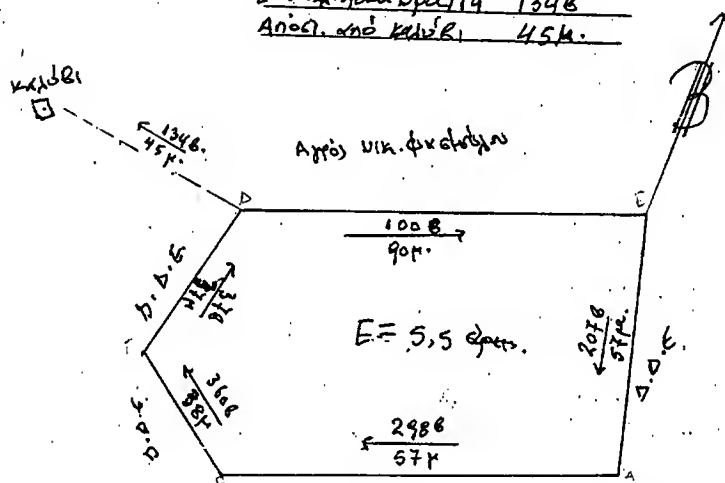 134 β
Απόστ. από καλύβι 45 μ.
καλύβι
134 β.
45 μ.
Αγρός Νικ.
B
Δ
E
100 β
90 μ.
Δ.Δ.Ε
37 β
E = 5,5 στρεμ.
207 β
57 μ.
Δ.Δ.Ε.
Γ
360 β
38 μ
Δ.Δ.Ε
298 β
57 μ
A